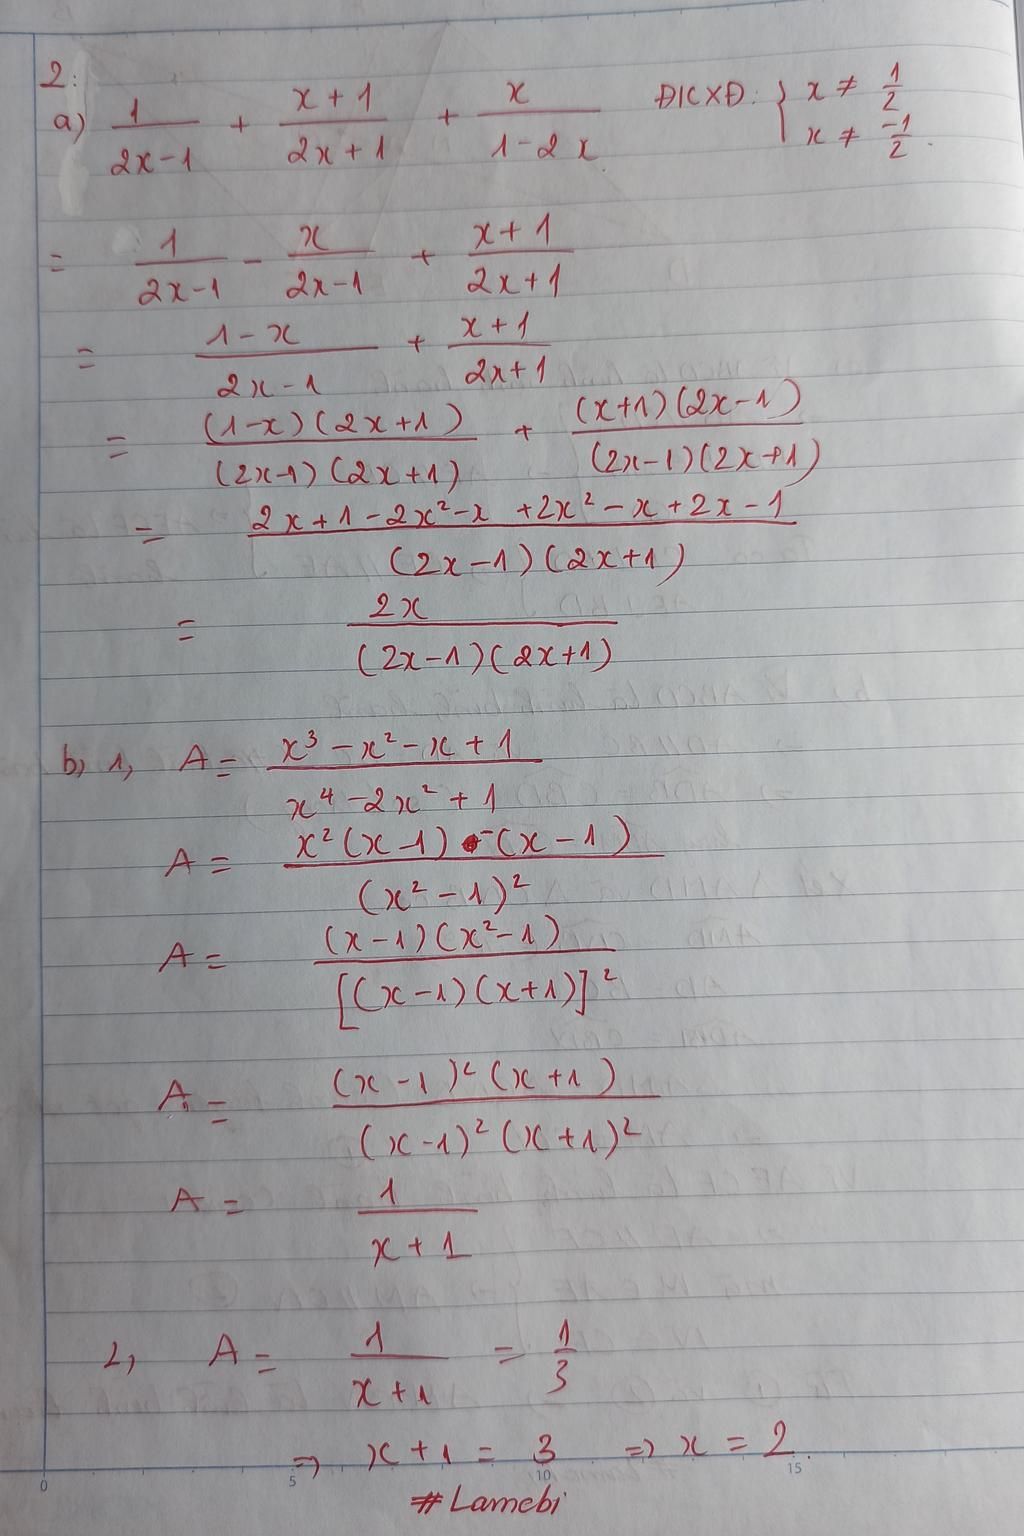 2:
a) 1/(2x-1) + (x+1)/(2x+1) + x/(1-2x) ĐKXĐ: { x ≠ 1/2
x ≠ -1/2.
= 1/(2x-1) - x/(2x-1) + (x+1)/(2x+1)
= (1-x)/(2x-1) + (x+1)/(2x+1)
= (1-x)(2x+1)/(2x-1)(2x+1) + (x+1)(2x-1)/(2x-1)(2x+1)
= (2x+1-2x²-x+2x²-x+2x-1)/(2x-1)(2x+1)
= 2x/(2x-1)(2x+1)
b, 1, A = (x³-x²-x+1)/(x⁴-2x²+1)
A = (x²(x-1) -(x-1))/(x²-1)²
A = (x-1)(x²-1)/[(x-1)(x+1)]²
A = (x-1)²(x+1)/(x-1)²(x+1)²
A = 1/(x+1)
2, A = 1/(x+1) = 1/3
=> x+1 = 3 => x = 2
0 5 10 15
#Lamebi